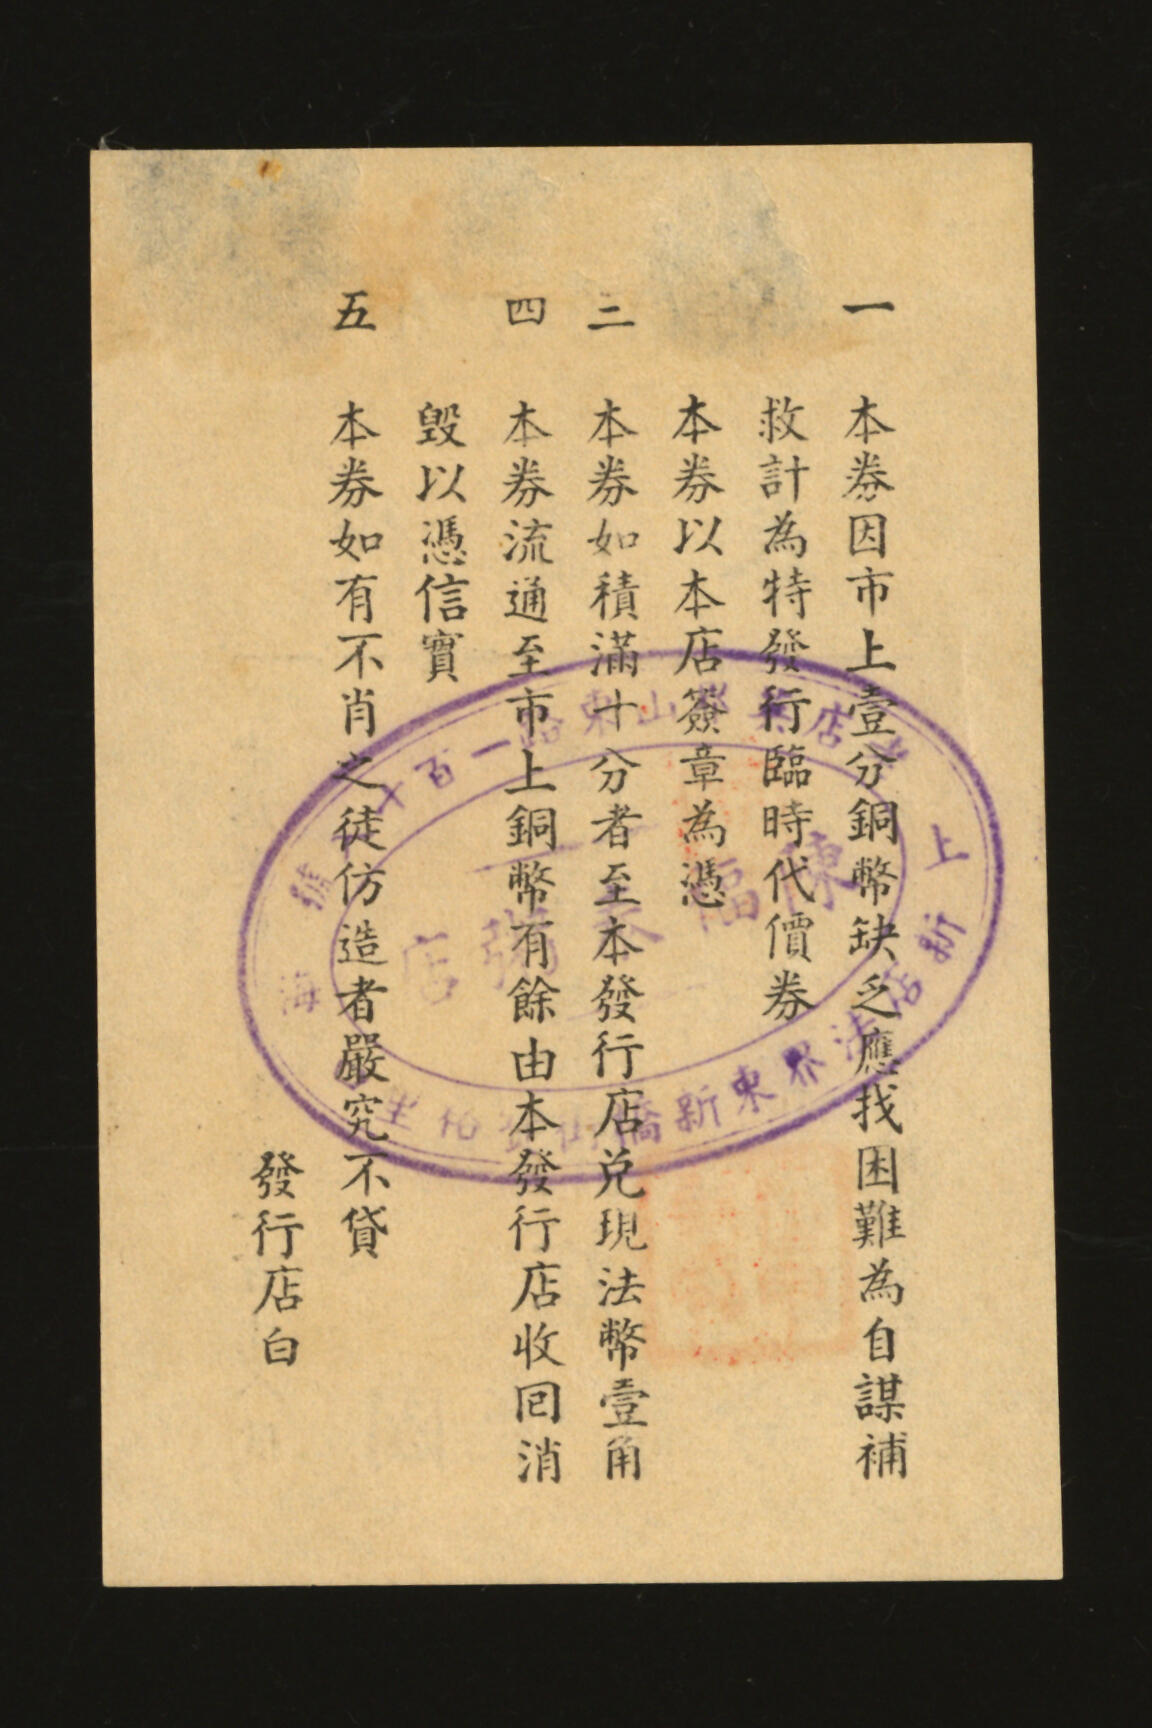 一 本券因市上壹分銅幣缺乏應找困難為自謀補
救計為特發行臨時代價券
本券以本店簽章為憑
三 本券如積滿十分者至本發行店兌現法幣壹角
四 本券流通至市上銅幣有餘由本發行店收回消
毀以憑信實
五 本券如有不肖之徒仿造者嚴究不貸
發行店白
上海
店 山東路一百十 號
新店法界東新橋街 裕里
陳福 店